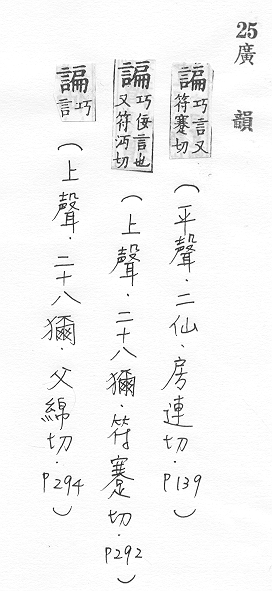 25廣 韻
諞巧言又符蹇切（平聲．二仙．房連切．P139）
諞巧佞言也又符沔切（上聲．二十八獮．符蹇切．P292）
諞巧言（上聲．二十八獮．父綿切．P294）